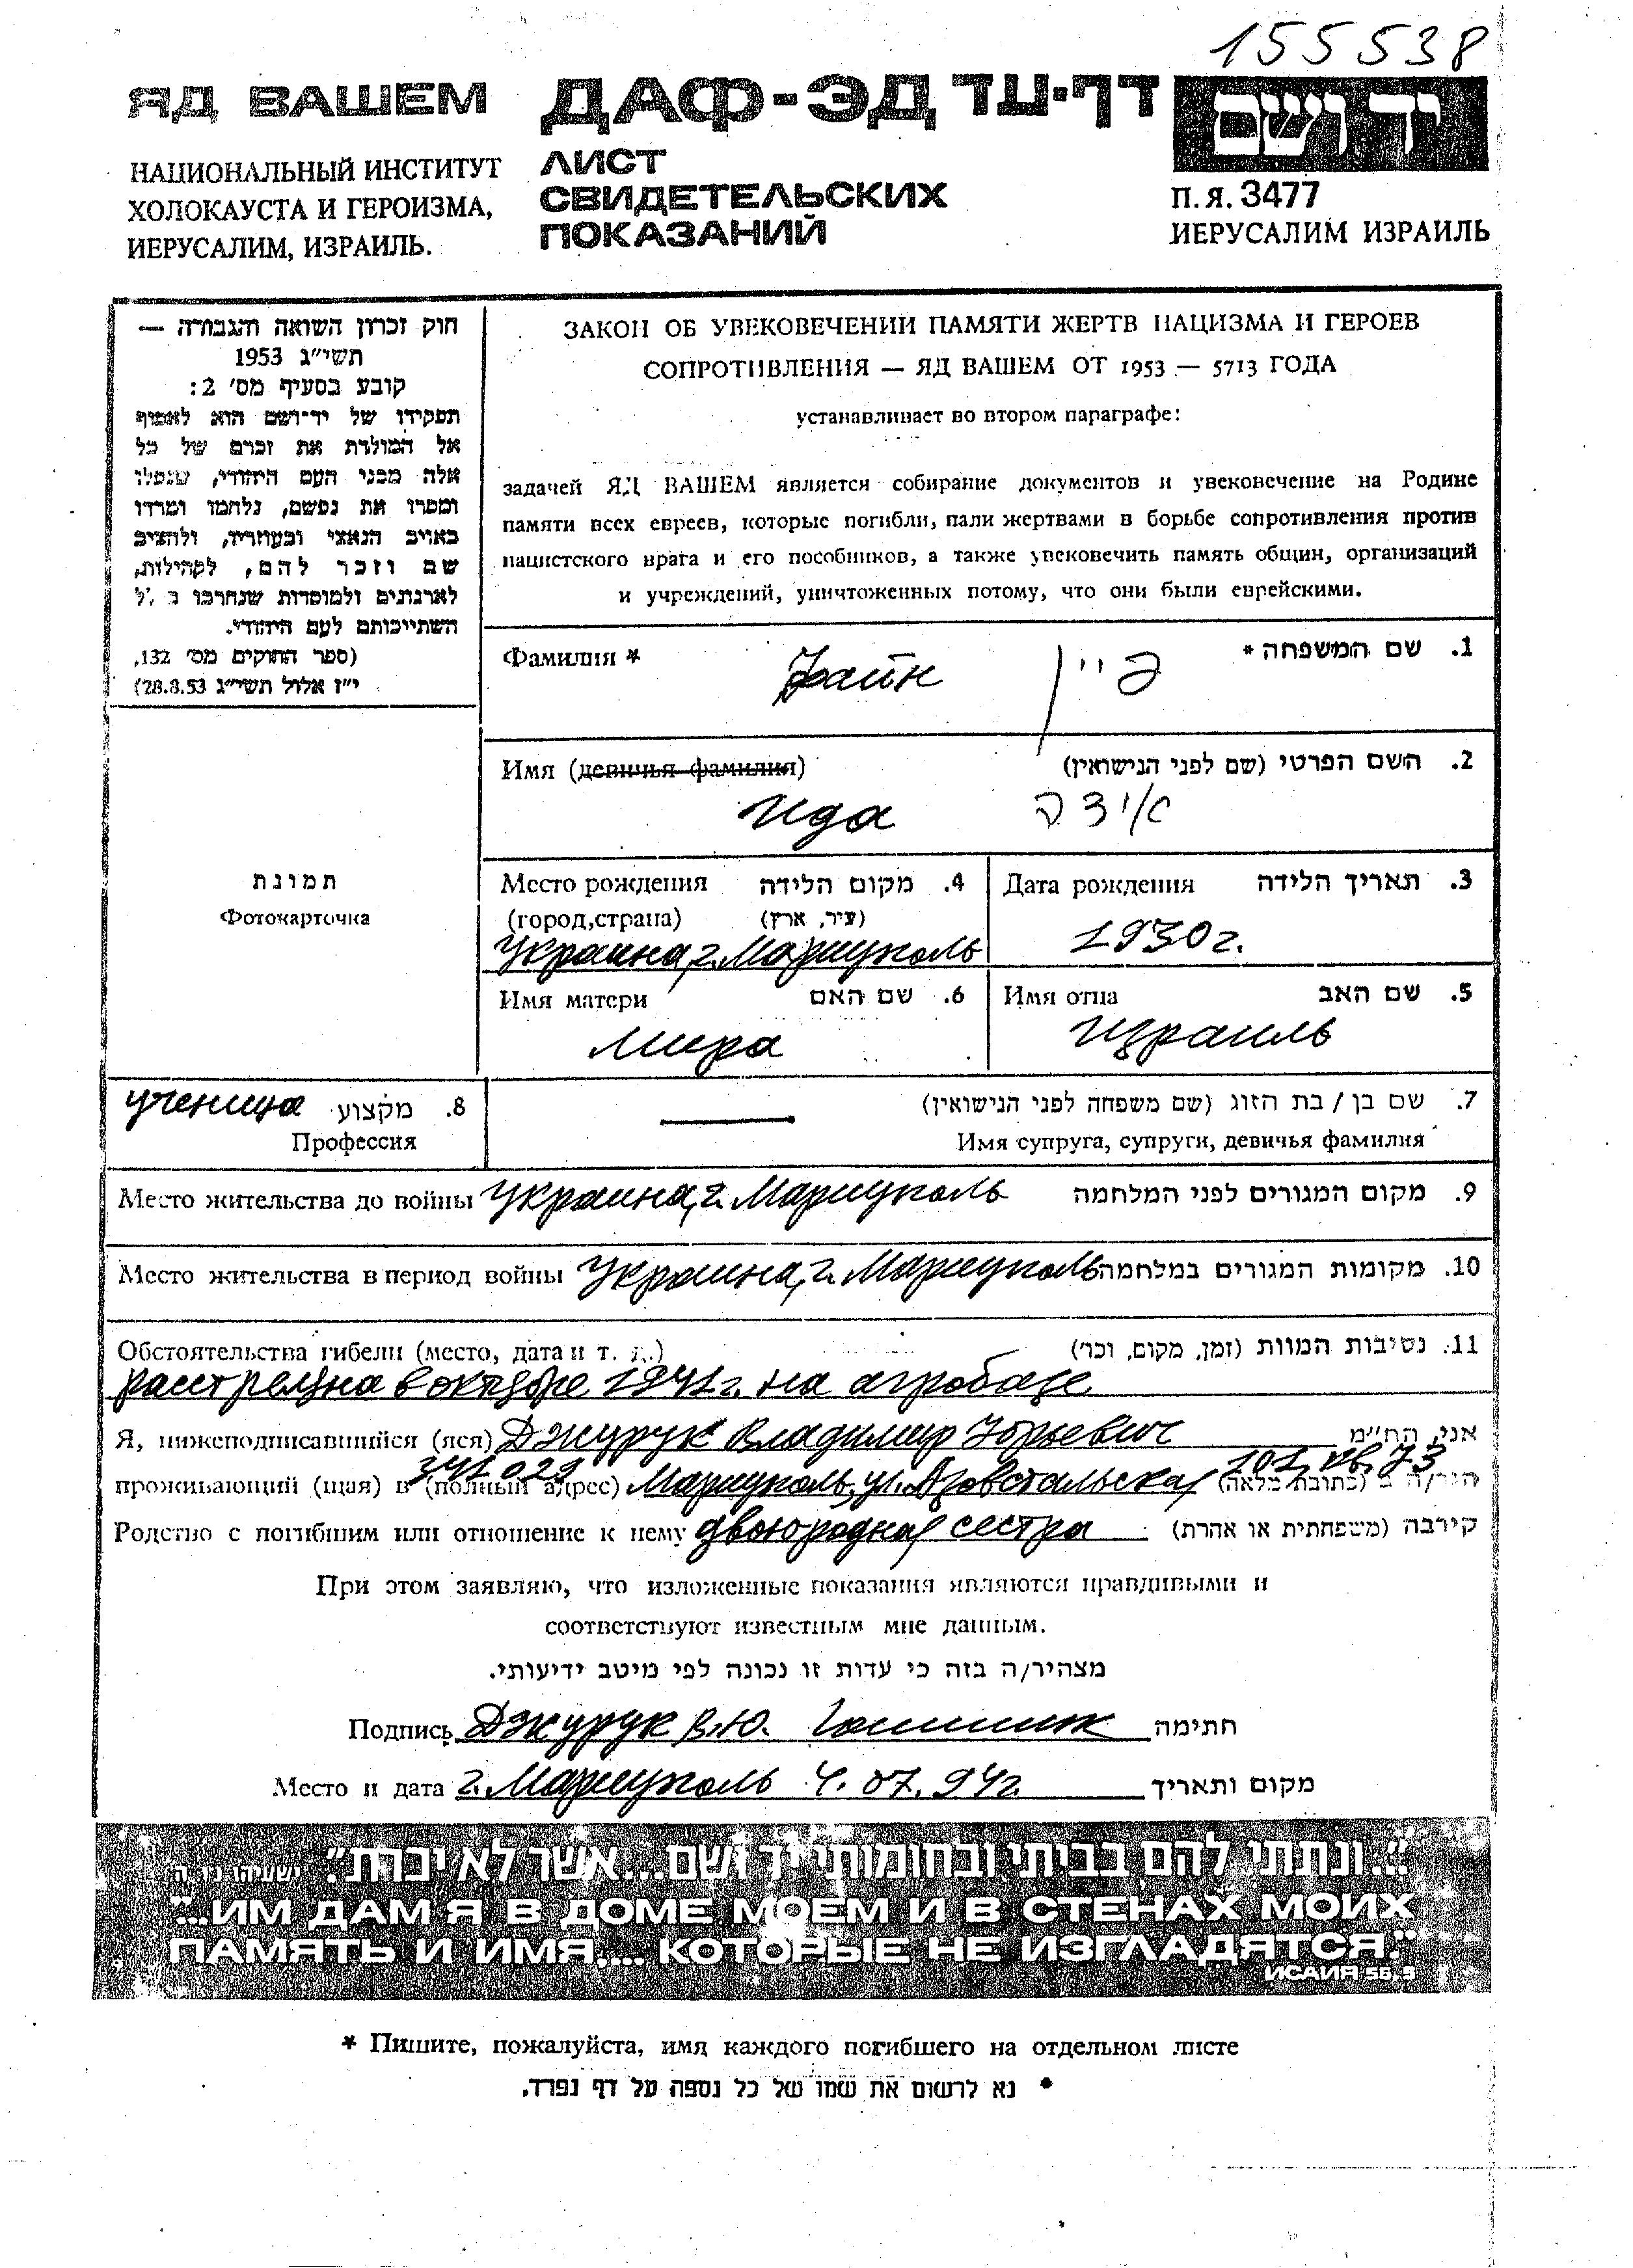 155538
ЯД ВАШЕМ
ДАФ-ЭД דף-עד
יד ושם
НАЦИОНАЛЬНЫЙ ИНСТИТУТ
ХОЛОКАУСТА И ГЕРОИЗМА,
ИЕРУСАЛИМ, ИЗРАИЛЬ.
ЛИСТ
СВИДЕТЕЛЬСКИХ
ПОКАЗАНИЙ
П.Я. 3477
ИЕРУСАЛИМ ИЗРАИЛЬ
חוק זכרון השואה והגבורה —
תשי״ג 1953
קובע בסעיף מס׳ 2:
תפקידו של יד־ושם הוא לאסוף
אל המולדת את זכרם של כל
אלה מבני העם היהודי, שנפלו
ומסרו את נפשם, נלחמו ומרדו
באויב הנאצי ובעוזריו, ולהציב
שם וזכר להם, לקהילות,
לארגונים ולמוסדות שנחרבו
השתייכותם לעם היהודי.
(ספר החוקים מס׳ 132,
י״ז אלול תשי״ג 28.8.53)
ЗАКОН ОБ УВЕКОВЕЧЕНИИ ПАМЯТИ ЖЕРТВ НАЦИЗМА И ГЕРОЕВ
СОПРОТИВЛЕНИЯ — ЯД ВАШЕМ ОТ 1953 — 5713 ГОДА
устанавливает во втором параграфе:
задачей ЯД ВАШЕМ является собирание документов и увековечение на Родине
памяти всех евреев, которые погибли, пали жертвами в борьбе сопротивления против
нацистского врага и его пособников, а также увековечить память общин, организаций
и учреждений, уничтоженных потому, что они были еврейскими.
Фамилия *
1. שם המשפחה *
Файн פיין
Имя (девичья фамилия)
2. השם הפרטי (שם לפני הנישואין)
Ида אידה
תמונת
Фотокарточка
Место рождения 4. מקום הלידה
(город,страна) (עיר, ארץ)
Украина, г. Мариуполь
Дата рождения 3. תאריך הלידה
1930 г.
Имя матери 6. שם האם
Мира
Имя отца 5. שם האב
Израиль
ученица 8. מקצוע
Профессия
— 7. שם בן / בת הזוג (שם משפחה לפני הנישואין)
Имя супруга, супруги, девичья фамилия
Место жительства до войны Украина, г. Мариуполь 9. מקום המגורים לפני המלחמה
Место жительства в период войны Украина, г. Мариуполь 10. מקומות המגורים במלחמה
Обстоятельства гибели (место, дата и т. д.) 11. נסיבות המוות (זמן, מקום, וכו׳)
расстреляна в октябре 1941 г. на агробазе
Я, нижеподписавшийся (яся) Джурук Владимир Юрьевич אני, הח״מ
341029 101, кв. 73
проживающий (щая) в (полный адрес) Мариуполь, ул. Азовстальская הגר/ה ב (כתובת מלאה)
Родство с погибшим или отношение к нему двоюродная сестра קירבה (משפחתית או אחרת)
При этом заявляю, что изложенные показания являются правдивыми и
соответствуют известным мне данным.
מצהיר/ה בזה כי עדות זו נכונה לפי מיטב ידיעותי.
Подпись Джурук В.Ю. חתימה
Место и дата г. Мариуполь 4.07.94г. מקום ותאריך
"...ונתתי להם בביתי ובחומותי יד ושם....אשר לא יכרת" ישעיהו נו, ה
"...ИМ ДАМ Я В ДОМЕ МОЕМ И В СТЕНАХ МОИХ
ПАМЯТЬ И ИМЯ,... КОТОРЫЕ НЕ ИЗГЛАДЯТСЯ."
ИСАИЯ 56, 5
* Пишите, пожалуйста, имя каждого погибшего на отдельном листе
* נא לרשום את שמו של כל נספה על דף נפרד.